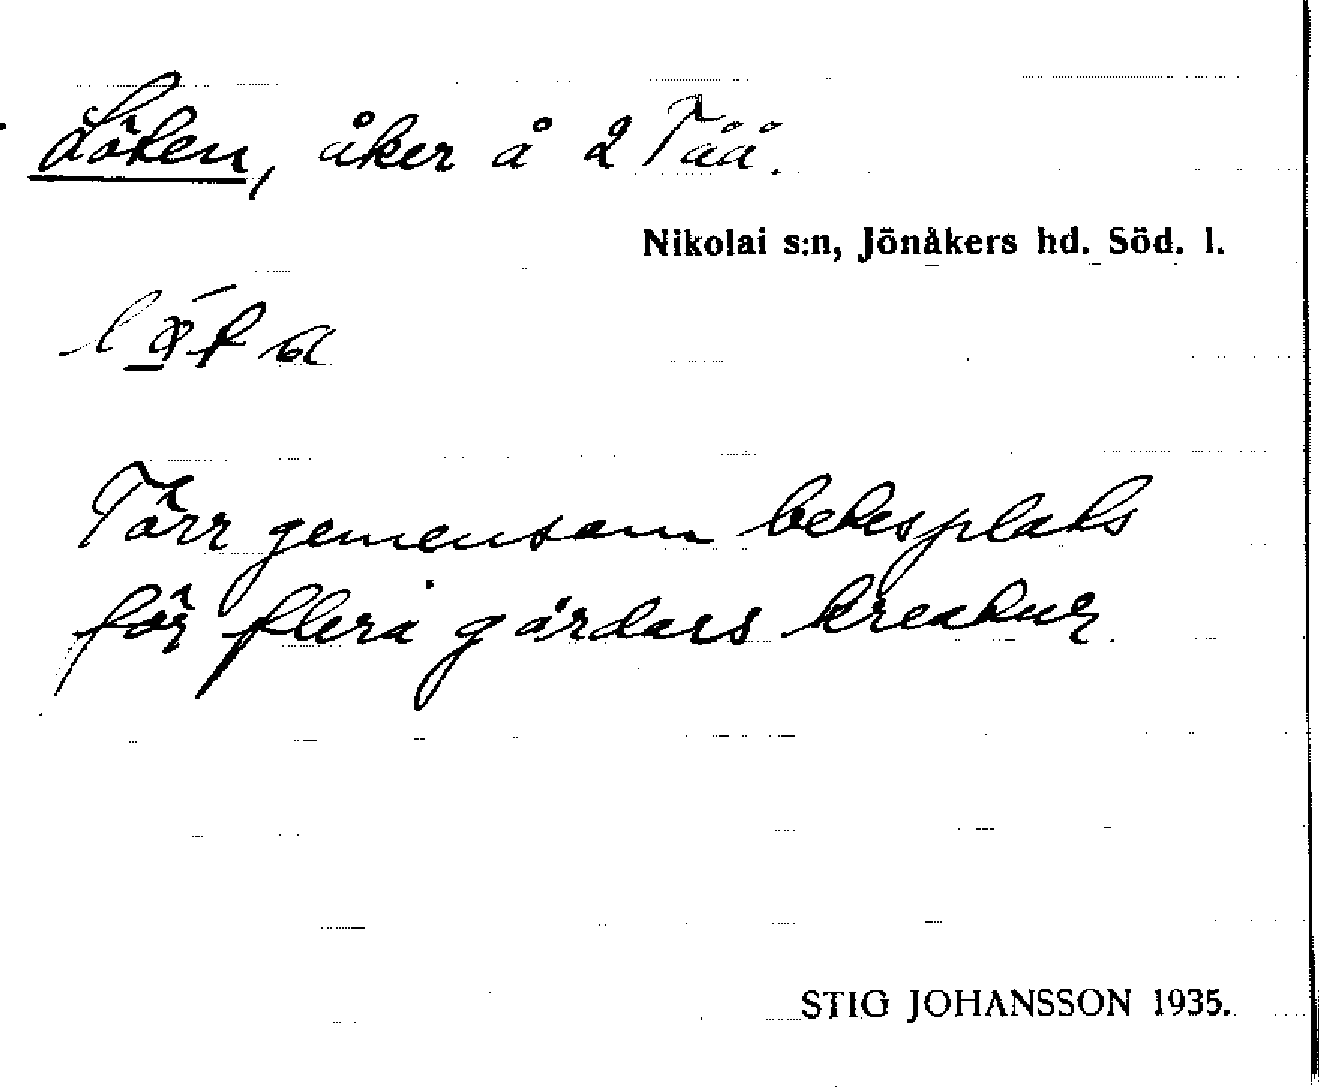 Löten, åker å 2 Tåå.
Nikolai s:n, Jönåkers hd. Söd. l.
Törr gemensam betesplats
för flera gårdars kreatur.
STIG JOHANSSON 1935.